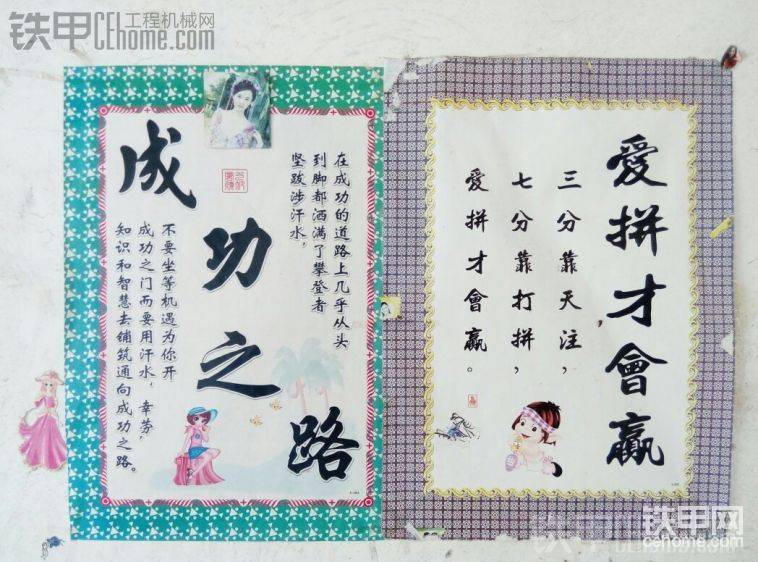 铁甲工程机械网
CEhome.com
成功之路
在成功的道路上几乎从头
到脚都洒满了攀登者
坚跋涉汗水,
不要坐等机遇为你开
成功之门而要用汗水,幸劳,
知识和智慧去铺筑通向成功之路。
愛拼才會贏
三分靠天注,
七分靠打拼,
愛拼才會贏。
铁甲网
cehome.com